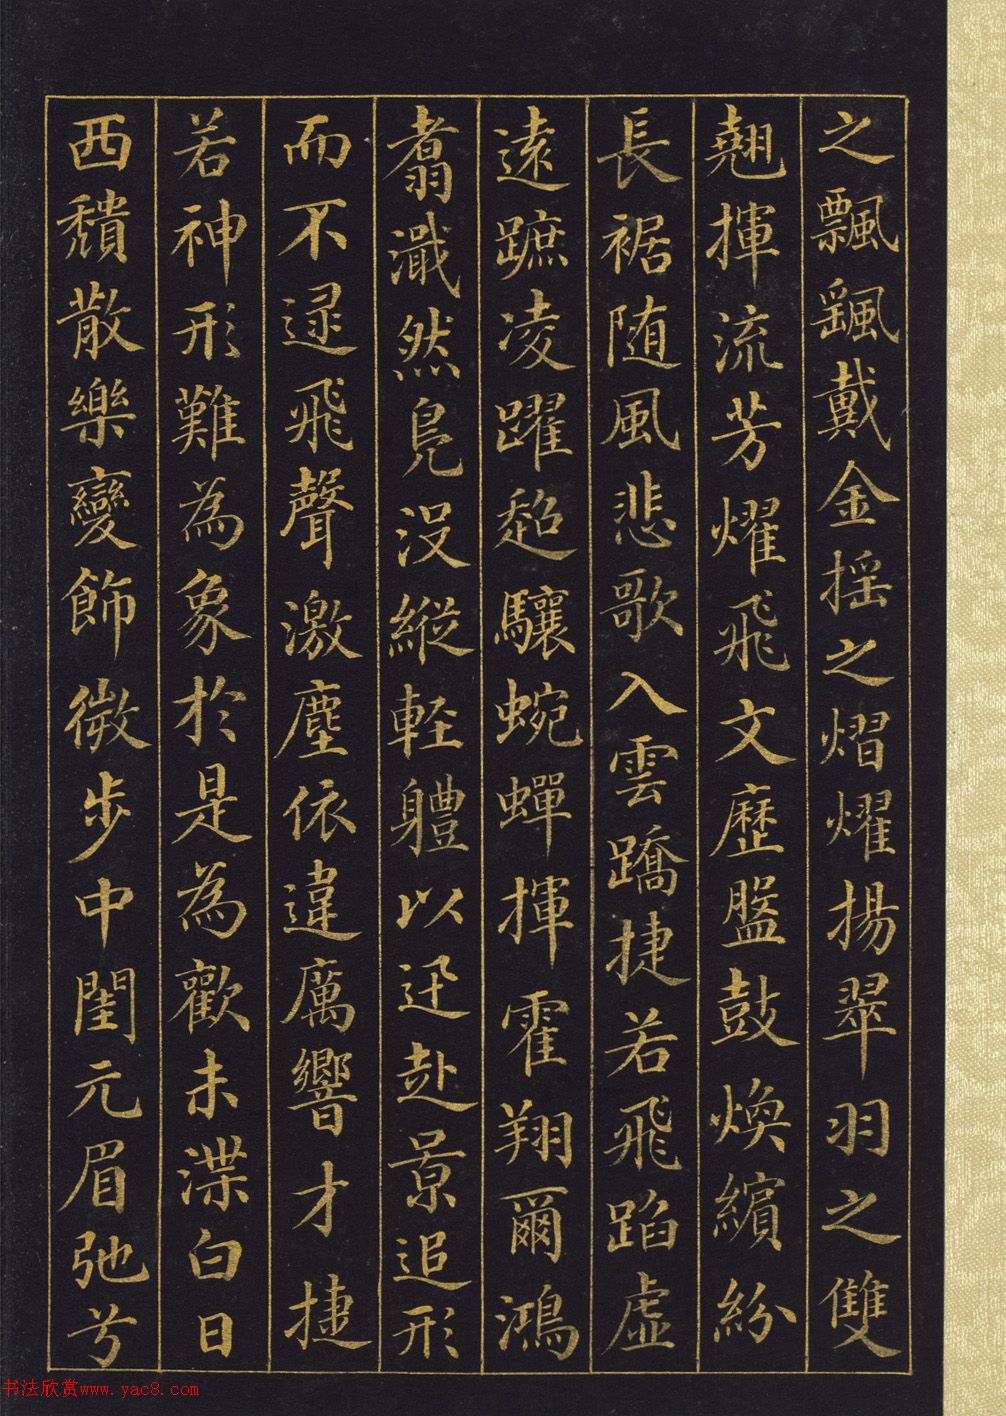 之飄颻戴金摇之熠燿揚翠羽之雙
翹揮流芳燿飛文歷盤鼓煥繽紛
長裾随風悲歌入雲蹻捷若飛蹈虛
遠蹠凌躍超驤蜿蟬揮霍翔爾鴻
翥濈然鳧没縱輕軆以迅赴景追形
而不逮飛聲激塵依違厲響才捷
若神形難為象於是為歡未渫白日
西頹散樂變飾微步中閨元眉弛兮
书法欣赏www.yac8.com